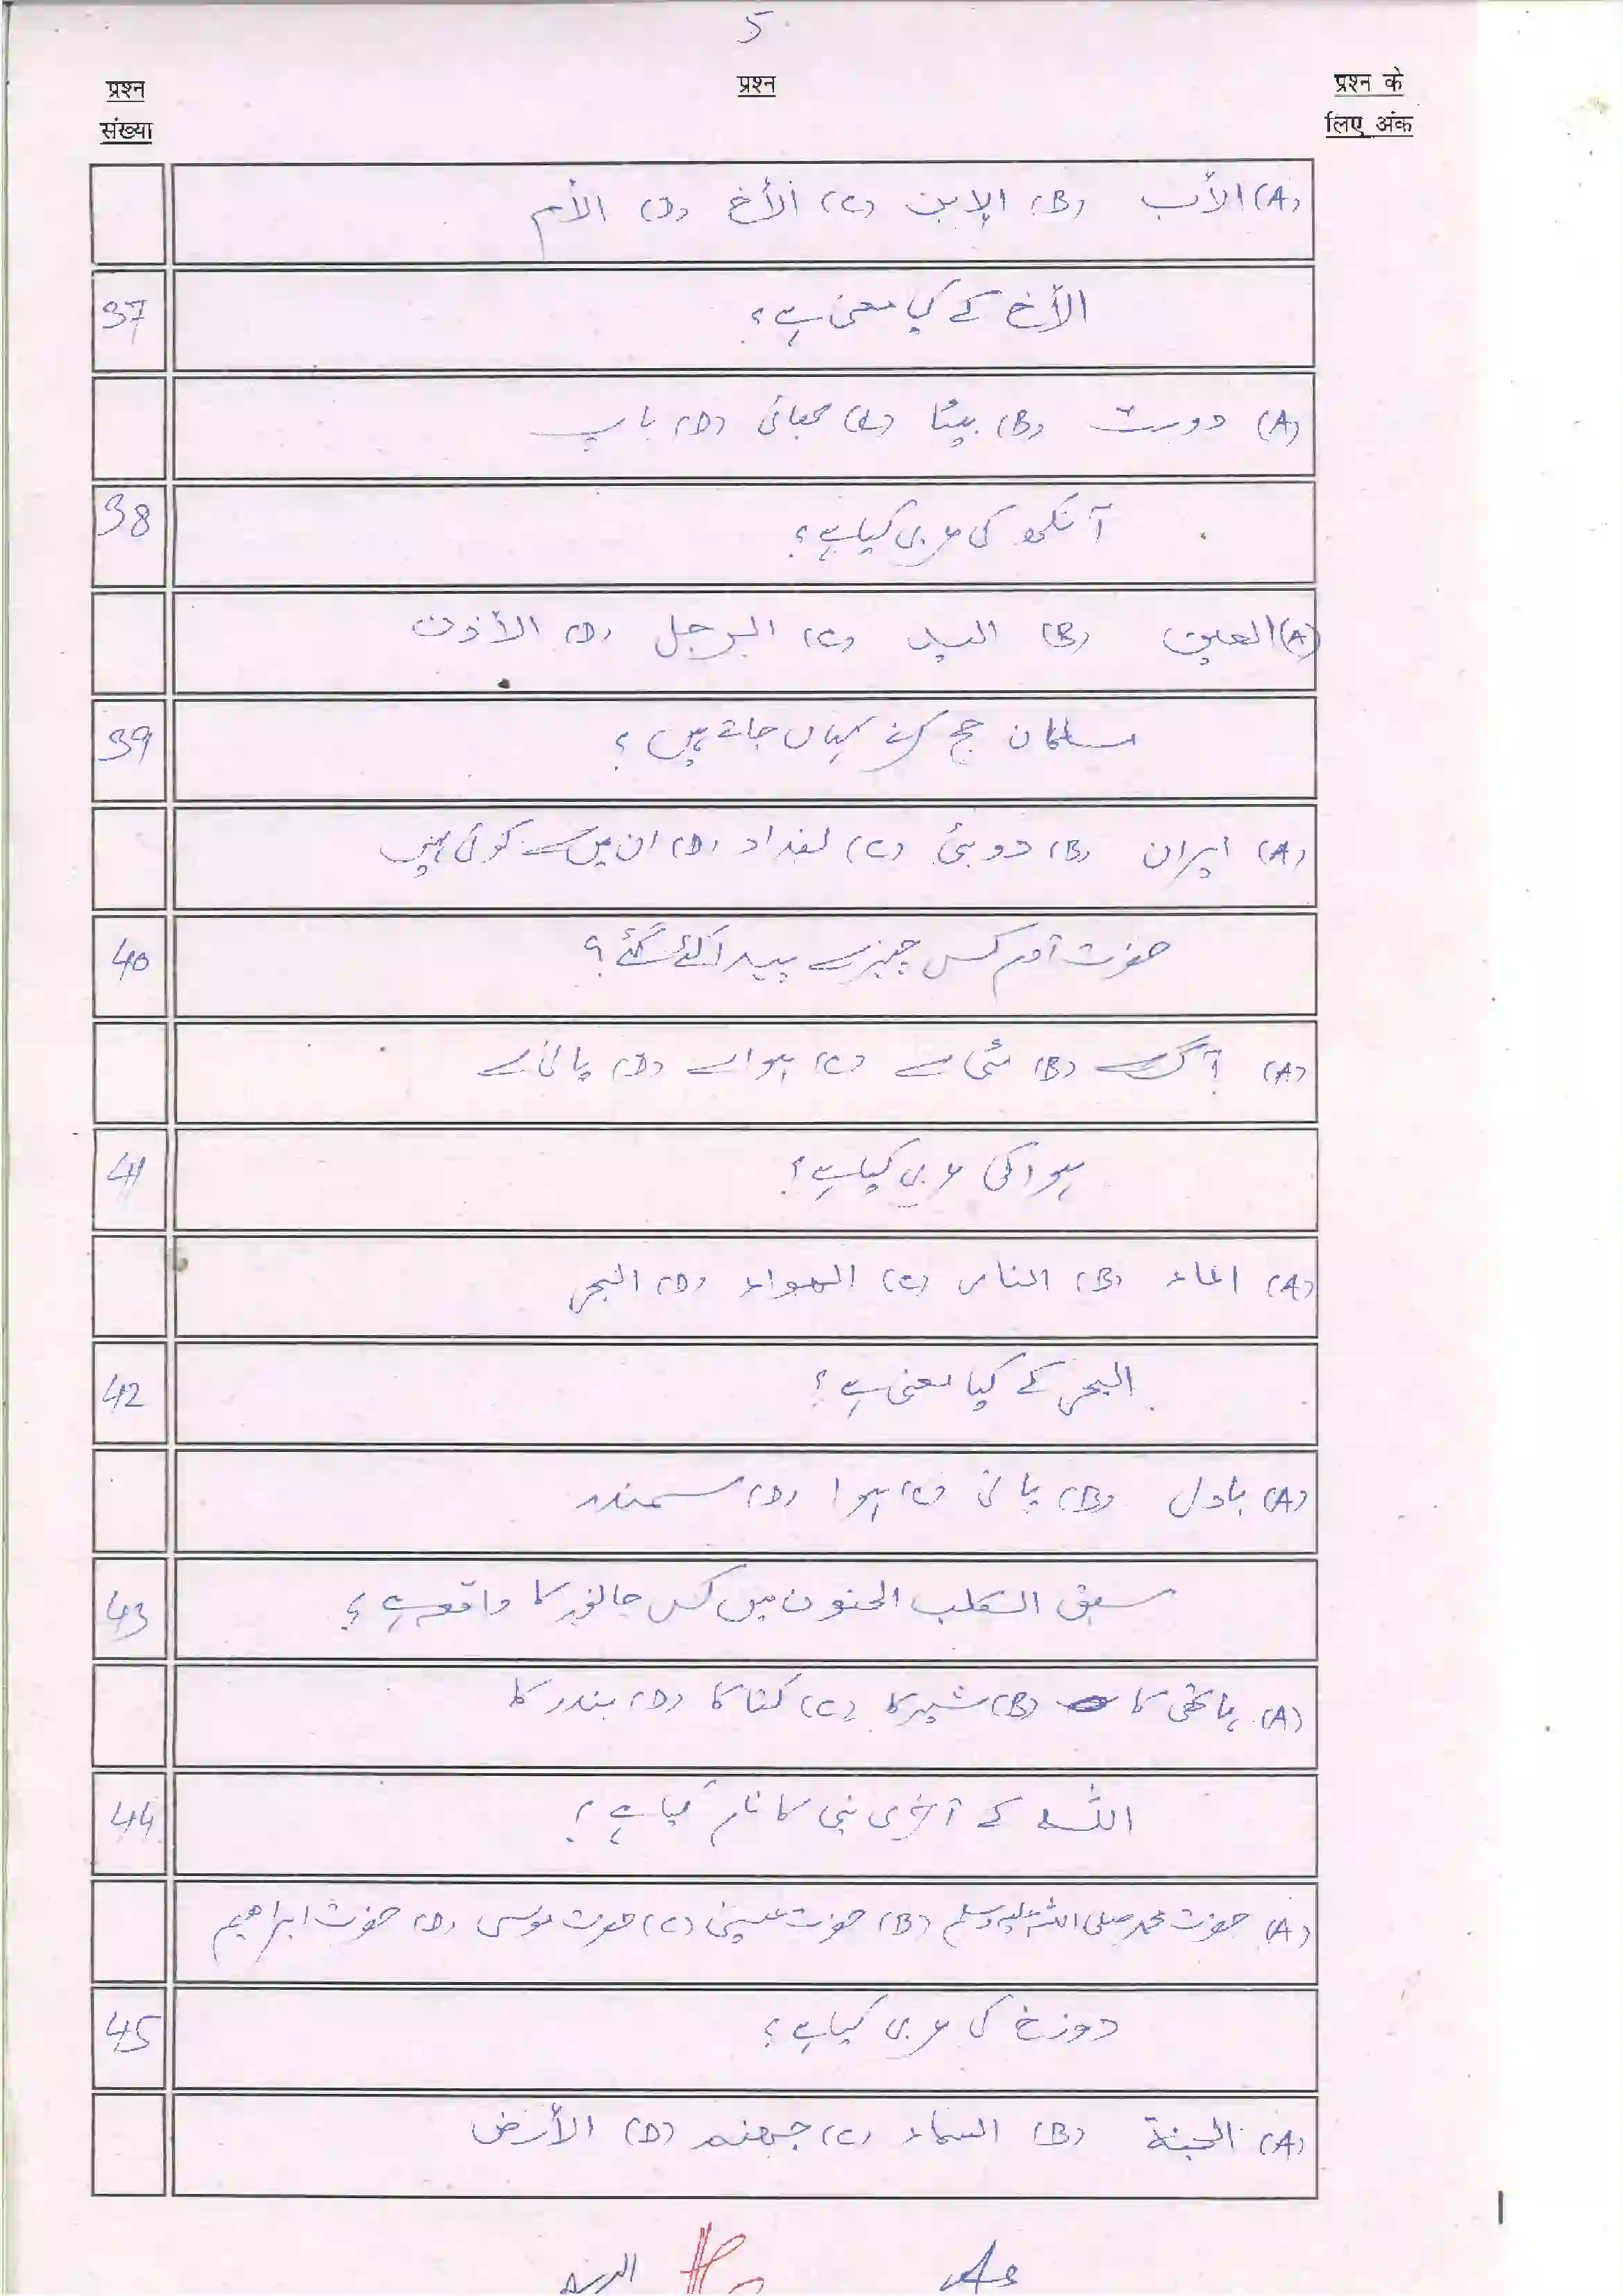 5
प्रश्न संख्या
प्रश्न
प्रश्न के लिए अंक
(A) الأب (B) الإبن (C) الأخ (D) الأم
37 الأخ کے کیا معنی ہے؟
(A) دوست (B) بیٹا (C) بھائی (D) باپ
38 آنکھ کی عربی کیا ہے؟
(A) العین (B) الید (C) الرجل (D) الأذن
39 مسلمان حج کرنے کہاں جاتے ہیں؟
(A) ایران (B) دوبئی (C) بغداد (D) ان میں سے کوئی نہیں
40 حضرت آدم کس چیز سے پیدا کئے گئے؟
(A) آگ سے (B) مٹی سے (C) ہوا سے (D) پانی سے
41 ہوا کی عربی کیا ہے؟
(A) الماء (B) الناس (C) الهواء (D) البحر
42 البحر کے کیا معنی ہے؟
(A) بادل (B) پانی (C) ہوا (D) سمندر
43 سبق الکلب الجنون میں کس جانور کا واقعہ ہے؟
(A) ہاتھی کا (B) شیر کا (C) کتا کا (D) بندر کا
44 اللہ کے آخری نبی کا نام کیا ہے؟
(A) حضرت محمد صلی اللہ علیہ وسلم (B) حضرت عیسیٰ (C) حضرت موسی (D) حضرت ابراھیم
45 دوزخ کی عربی کیا ہے؟
(A) الجنة (B) السماء (C) جہنم (D) الأرض